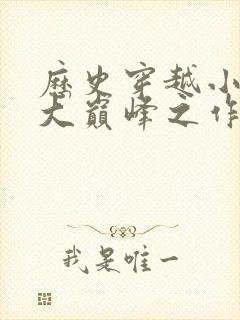 歷史穿越小
大巔峰之作
我是唯一